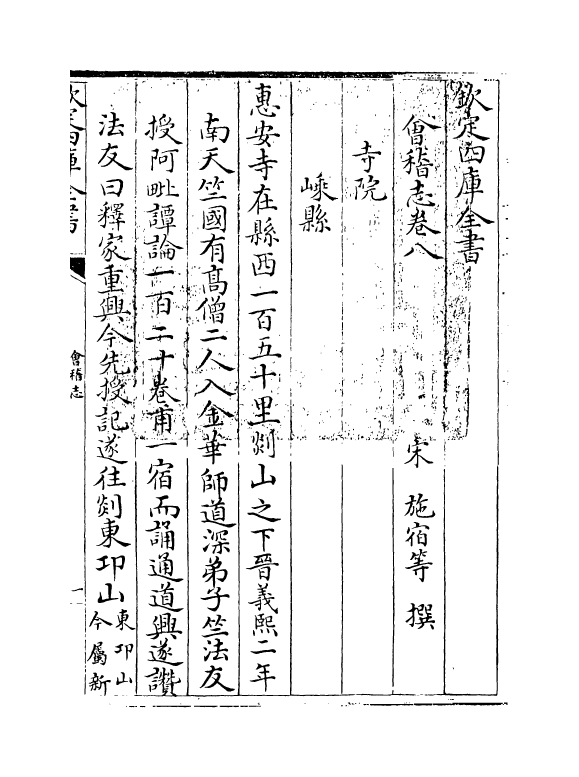 欽定四庫全書
會稽志卷八
宋 施宿等 撰
寺院
嵊縣
惠安寺在縣西一百五十里剡山之下晉義熙二年
南天竺國有髙僧二人入金華師道深弟子竺法友
授阿毗譚論一百二十卷甫一宿而誦通道興遂讃
法友曰釋家重興今先授記遂往剡東卭山
東卭山
今屬新
欽定四庫全書
會稽志
一